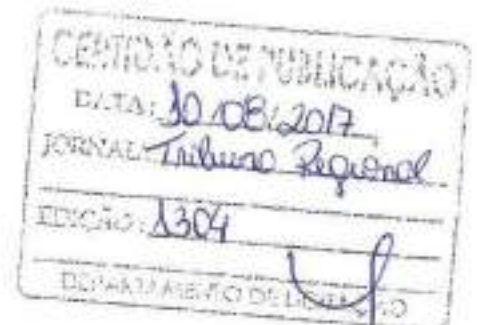 CERTIDÃO DE PUBLICAÇÃO
DATA: 10/08/2017
JORNAL: Tribuna Regional
EDIÇÃO: 1304
DEPARTAMENTO DE LICITAÇÃO